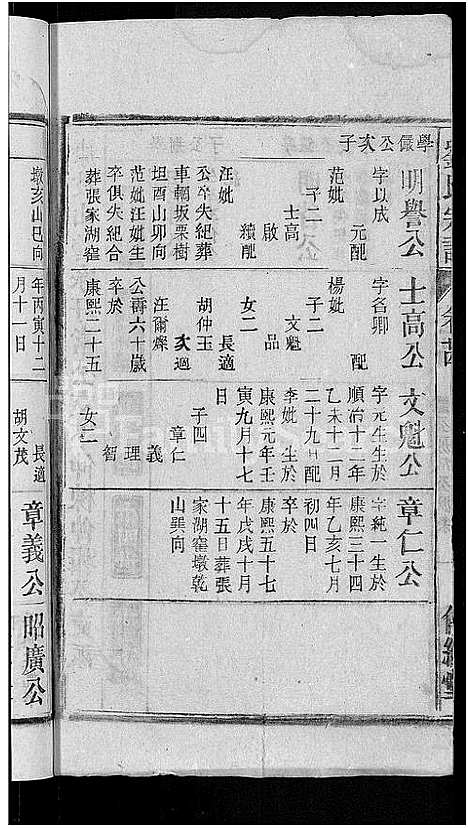 學儼公次子
明譽公
字以成
元配
范妣
子二
士高
啟
續配
汪妣
公卒失紀葬
車輞坂栗樹
坦酉山卯向
范妣汪妣生
卒俱失紀合
葬張家湖窰
士高公
字名卿
配
楊妣
子二
文魁
品
女二
長適
胡仲玉
次適
汪爾燦
公壽六十歲
卒於
康熙二十五
文魁公
字元生生於
順治十二年
乙未十二月
二十九日配
李妣 生於
康熙元年壬
寅九月十七
日
子四
章仁
義
理
智
女二
章仁公
字純一生於
康熙三十四
年乙亥七月
初四日
卒於
康熙五十七
年戊戌十月
十五日葬張
家湖窰墩乾
山巽向
墩亥山巳向
年丙寅十二
月十一日
長適
胡文茂
章義公
昭廣公